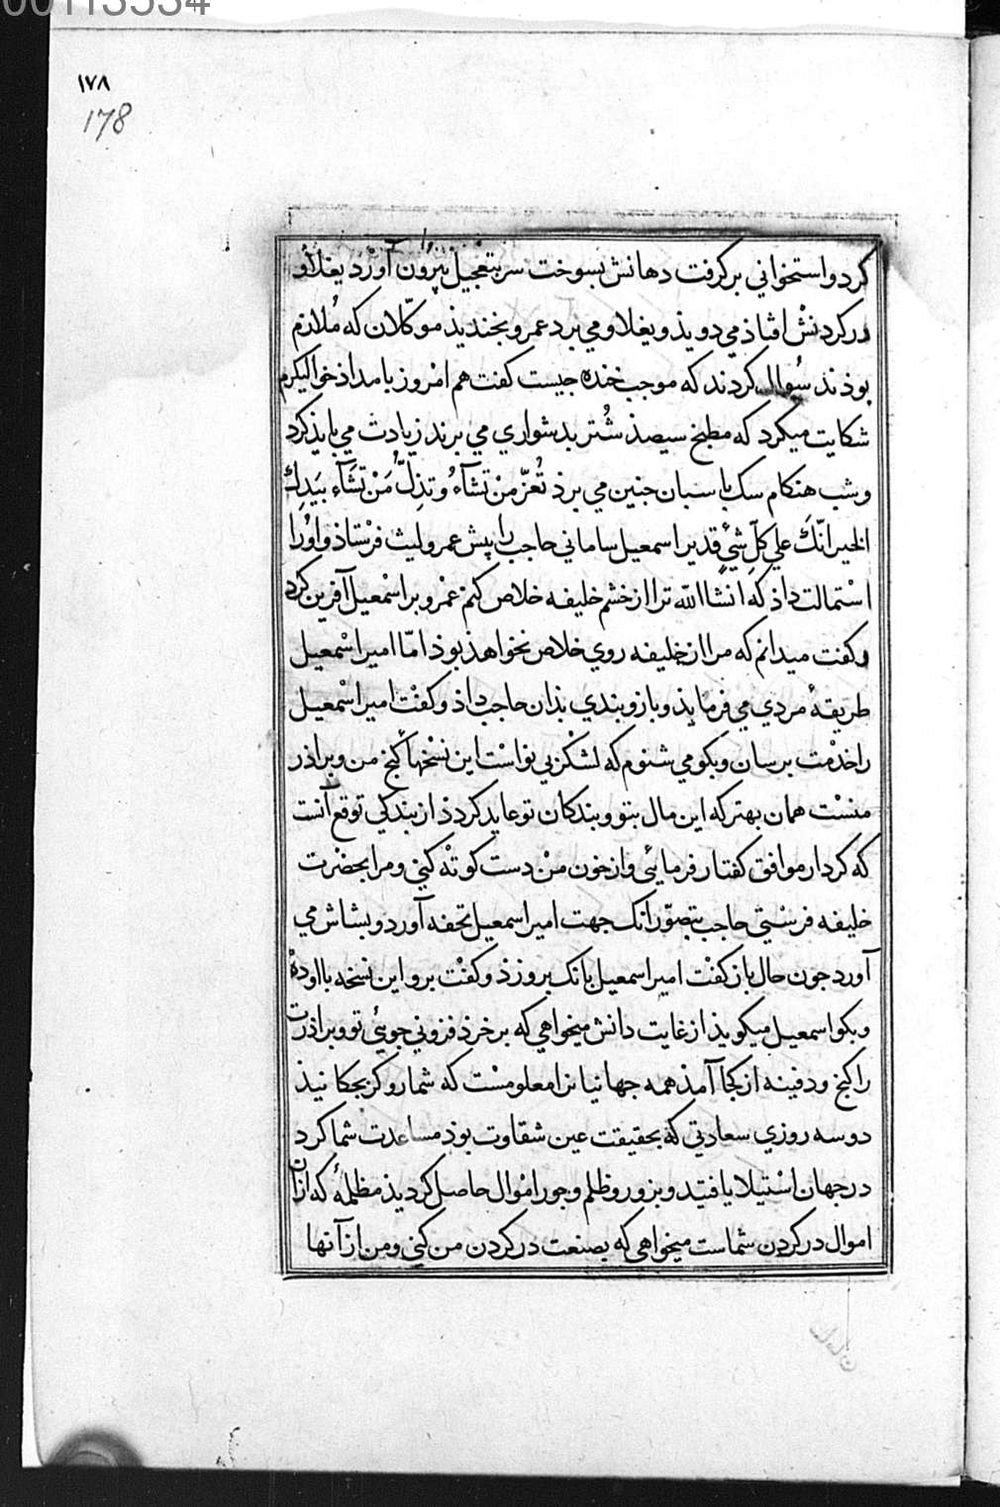 00113534
١٧٨
178
كرد و استخواني بر كرفت دهانش بسوخت سر بتعجيل بيرون آورد يغلاو
در كردنش افتاذ مي دويذ و يغلاو مي برد عمرو بخنديذ موكّلان كه مُلازم
بوذند سُوال كردند كه موجب خنده جيست كفت هم امْروز بامداذ خوالیكرم
شكايت ميكرد كه مطبخ سيصذ شُتر بدشواري مي برند زيادت مي بايذ كرد
و شب هنكام سك با سبان جنين مي برذ تُعزّ منْ تشآءُ و تذِلُّ مَنْ تشَآء بيَدِكَ
الخير انّكَ علي كلّ شئٍ قدير اسمعيل ساماني حاجب را پيش عمرو ليث فرْستاذ و اوْرا
اسْتمالت داذ كه انشاالله ترا از خشم خليفه خلاص كنم عمْرو بر اسْمعيل آفرين كرد
و كفت ميدانم كه مرا از خليفه روي خلاص نخواهذ بوذ امّا امير اسْمعيل
طريقهٔ مردي مي فرمايذ و بازوبندي بذان حاجب داذ و كفْت امير اسْمعيل
را خذمْت برسان و بكو مي شنوم كه لشكْر بي نواسْت اين نسْخها كنج من و براذر
منسْت همان بهتر كه اين مال بتو و بندكان تو عايد كردذ از بندكي توقع آنست
كه كردار موافق كفتار فرمايئ و از خون منْ دست كوتْه كني و مرا بحضْرت
خليفه فرسْتي حاجب بتصوّر انك جهت امير اسمعيل تحفه آورد و بشاش مي
آورد جون حال باز كفْت امير اسمعيل بانك بر وزذ و كفْت برو اين نسخه با او دهْ
و بكو اسمعيل ميكويذ از غايت دانش ميخواهي كه بر خرذ فزوني جويئ تو و براذرت
را كنج و دفينه از كجآ آمذ همه جهانيانرا معلومسْت كه شما روكر بجكانيذ
دو سه روزي سعادتي كه بحقيقت عين شقاوت بوذ مساعدت شما كرد
در جهان اسْتيلا يافتيد و بزور و ظلم و جور امْوال حاصل كرديذ مظلمهٔ كه از ان
اموال در كردن شماست ميخواهي كه بصنعت در كردن من كني و من از آنها